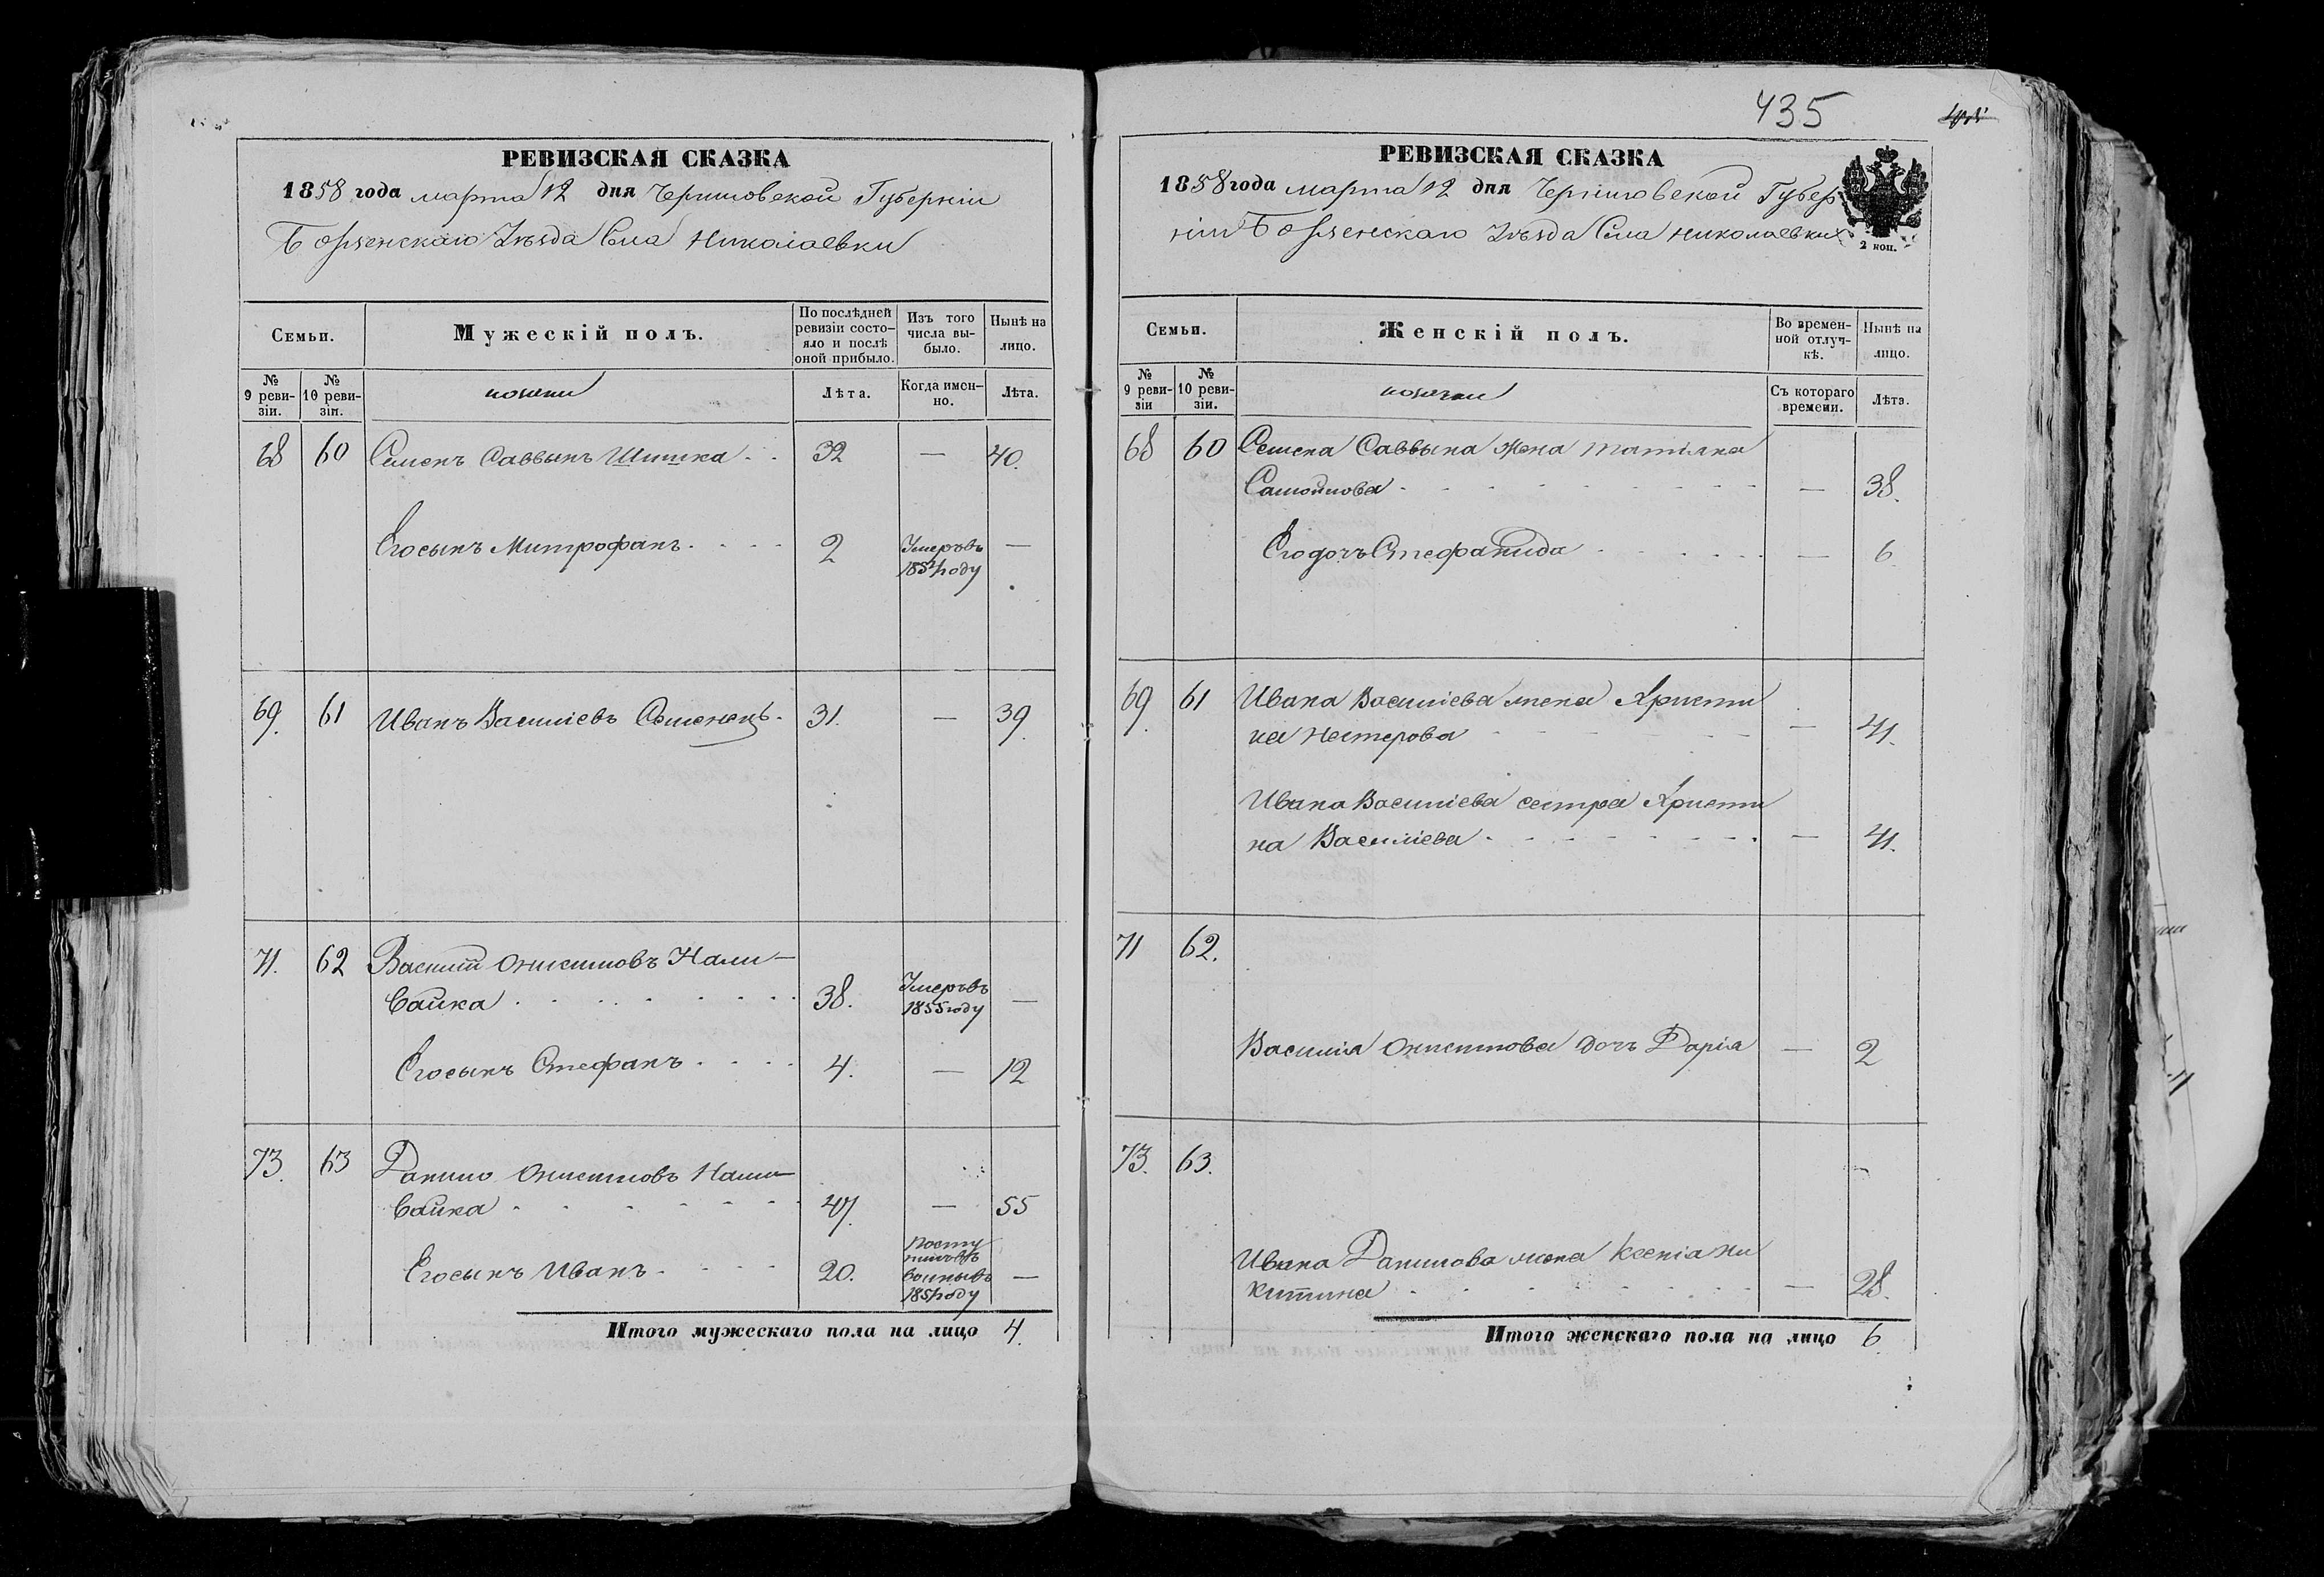 РЕВИЗСКАЯ СКАЗКА
1858 года марта 12 дня Черниговской Губерніи
Борзенскаго Уѣзда Села Николаевки
Семьи.
Мужескій полъ.
По послѣдней ревизіи состояло и послѣ оной прибыло.
Изъ того числа выбыло.
Нынѣ на лицо.
№ 9 ревизіи.
№ 10 ревизіи.
козаки
Лѣта.
Когда именно.
Лѣта.
68 60 Семенъ Саввынъ Шишка 32 — 40.
Его сынъ Митрофанъ 2 Умеръ въ —
1854 году
69. 61 Иванъ Василіевъ Семенецъ 31. — 39.
71. 62 Василій Онисимовъ Нали-
вайка 38. Умеръ въ —
1855 году
Его сынъ Стефанъ 4. — 12
73. 63 Данило Онисимовъ Нали-
вайка 47. — 55
Его сынъ Иванъ 20. —
1854 году
Итого мужескаго пола на лицо 4.
435
РЕВИЗСКАЯ СКАЗКА
1858 года марта 12 дня Черниговской Губер
ніи Борзенскаго Уѣзда Села Николаевки
2 коп.
Семьи.
Женскій полъ.
Во временной отлучкѣ.
Нынѣ на лицо.
№ 9 ревизіи
№ 10 ревизіи.
козачки
Съ котораго времени.
Лѣта.
68 60 Семена Саввына жена Татіяна
Самойлова — 38.
Его дочь Стефанида — 6
69. 61 Ивана Василіева жена Христи
на Нестерова — 41.
Ивана Василіева сестра Христи
на Василіева — 41.
71 62.
Василія Онисимова дочь Дарія — 2
73. 63.
Ивана Данилова жена Ксенія Ни
китина — 28.
Итого женскаго пола на лицо 6.